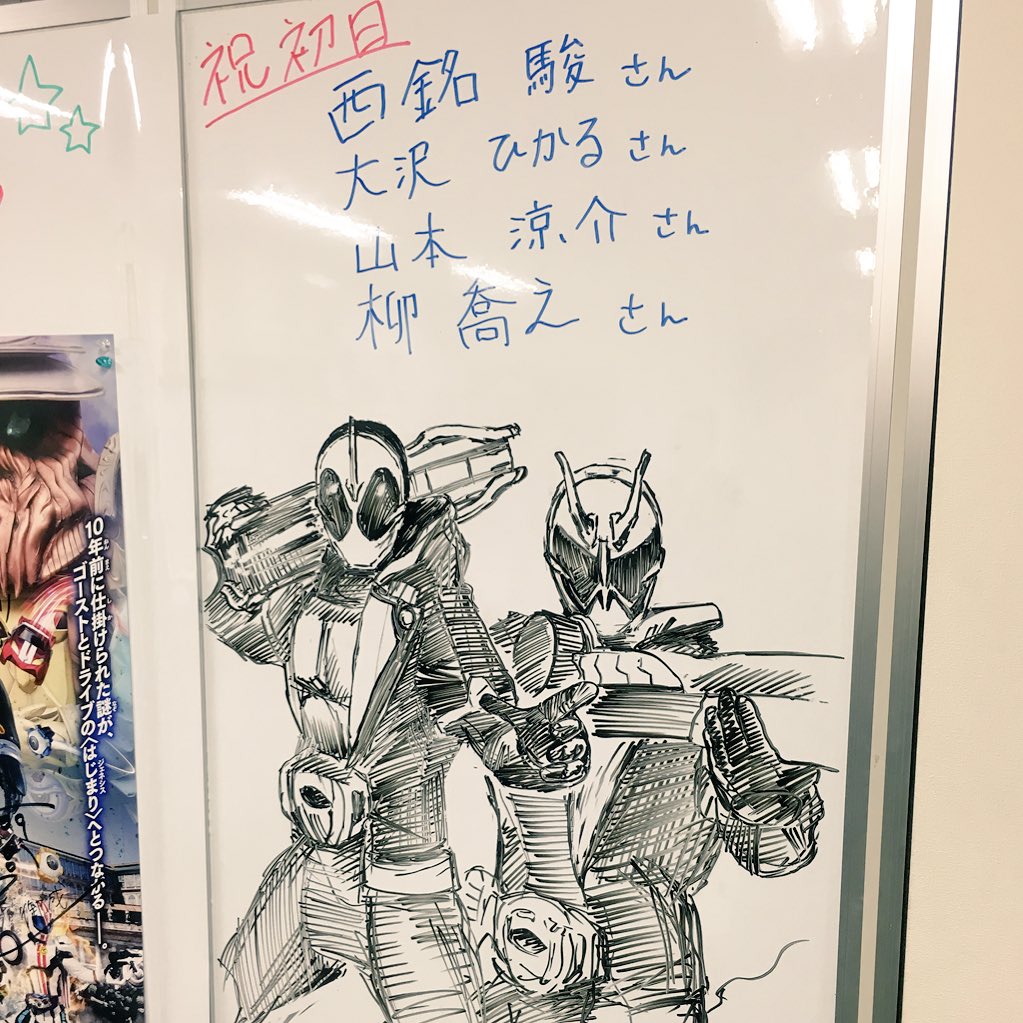 祝初日
西銘 駿さん
大沢 ひかるさん
山本 涼介さん
柳 喬之さん
10年前に仕掛けられた謎が、
ゴーストとドライブの〈はじまり〉へとつながる──。
ジェネシス